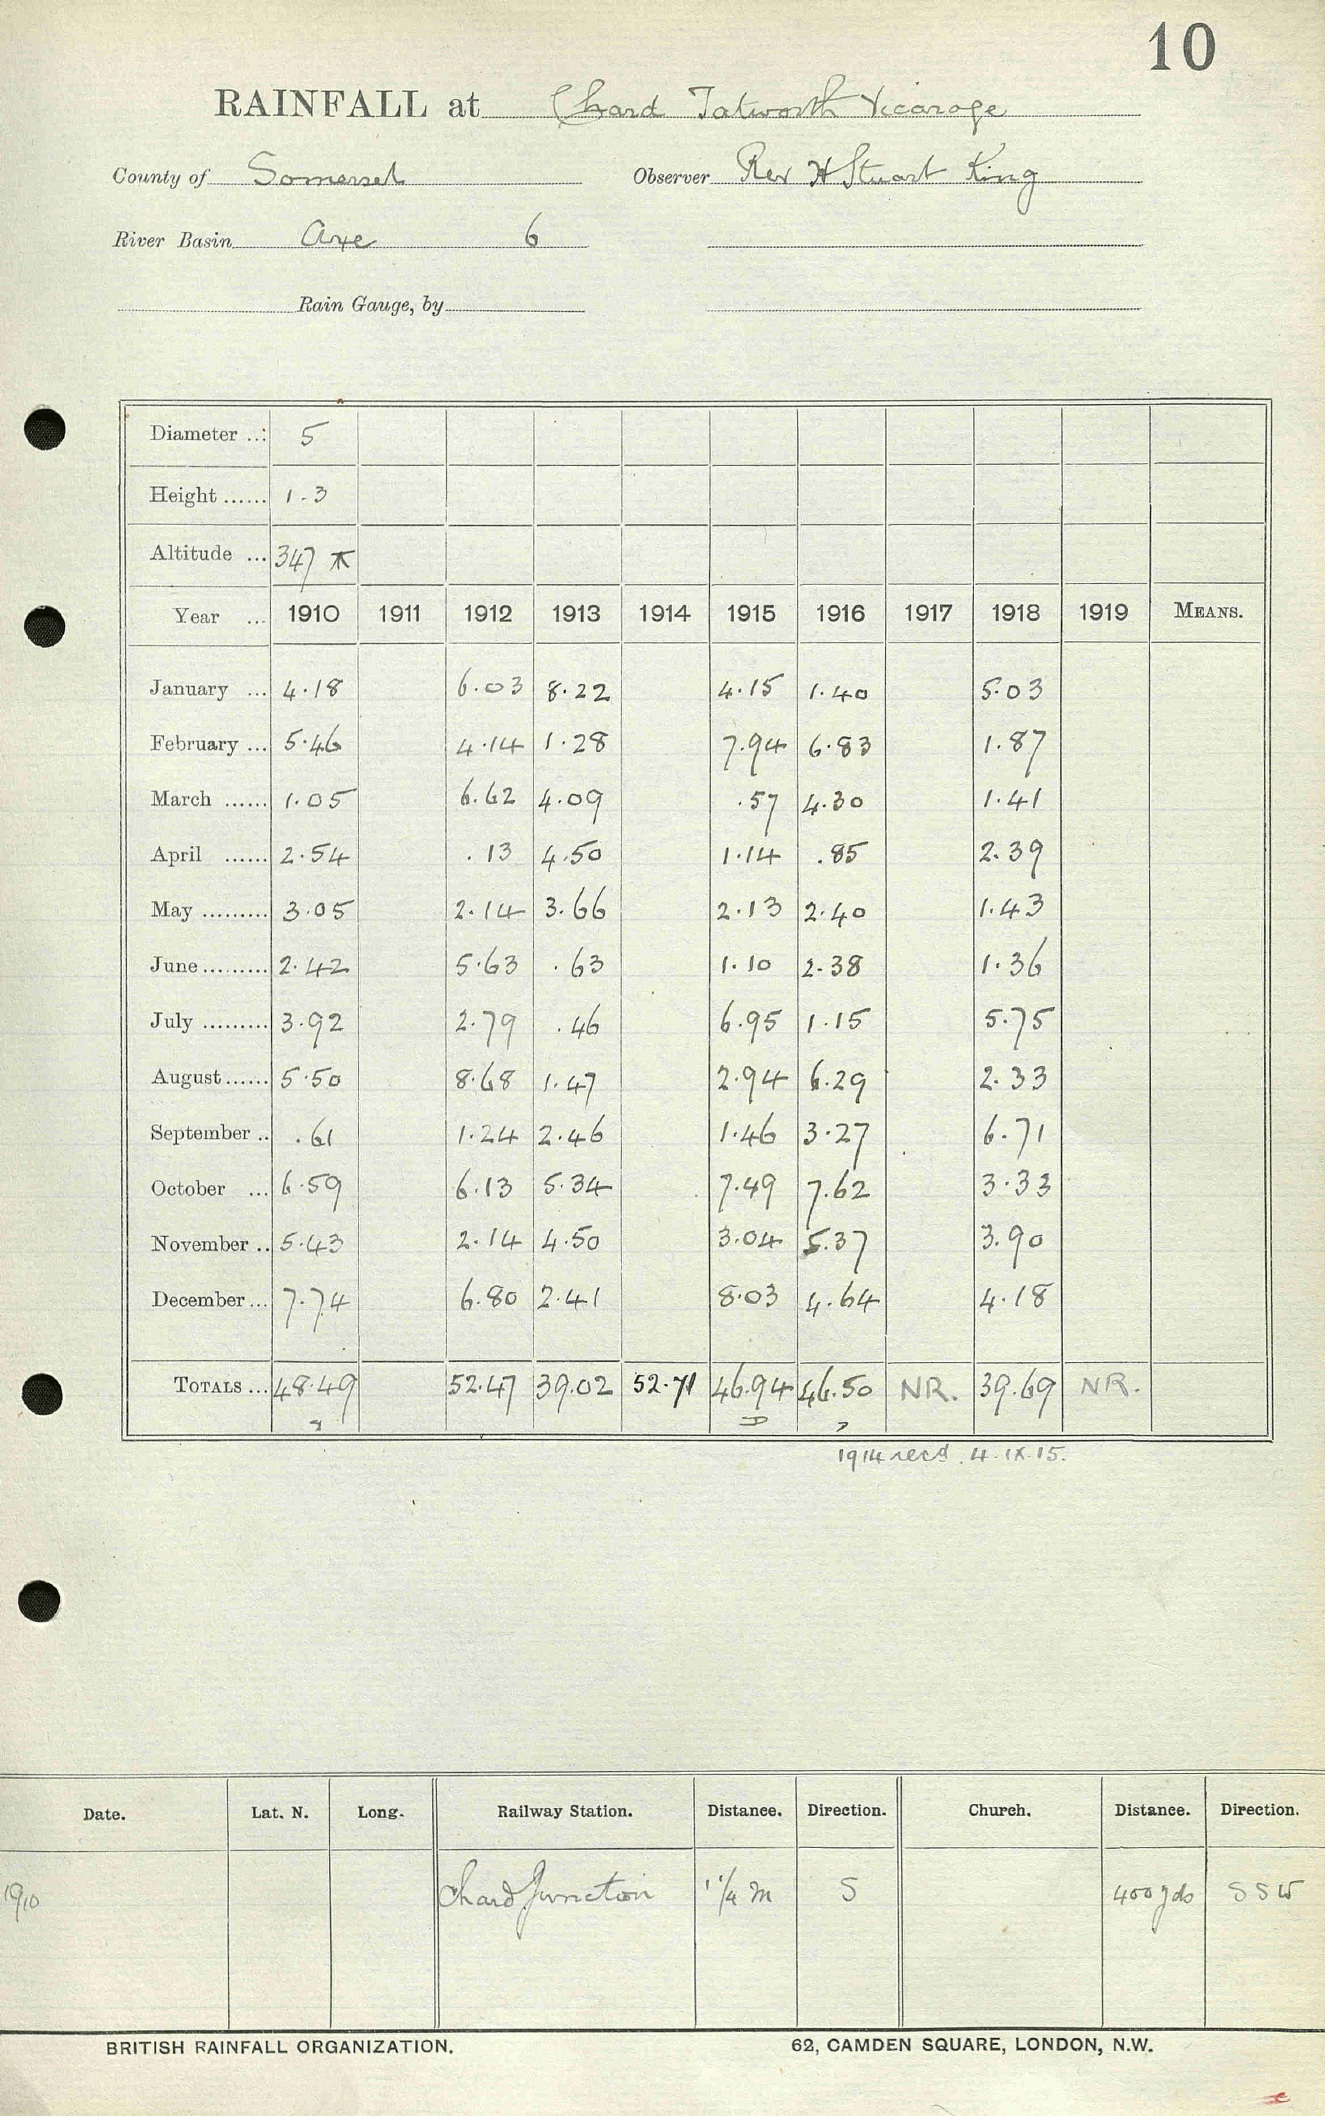 10
RAINFALL at Chard Tatworth Vicarage
County of Somerset Observer Rev H Stuart King
River Basin Axe 6
Rain Gauge, by
Diameter ... 5
Height ...... 1.3
Altitude ... 347
Year ... 1910 1911 1912 1913 1914 1915 1916 1917 1918 1919 MEANS.
January ... 4.18 6.03 8.22 4.15 1.40 5.03
February ... 5.46 4.14 1.28 7.94 6.83 1.87
March ...... 1.05 6.62 4.09 .57 4.30 1.41
April ...... 2.54 .13 4.50 1.14 .85 2.39
May ......... 3.05 2.14 3.66 2.13 2.40 1.43
June ......... 2.42 5.63 .63 1.10 2.38 1.36
July ......... 3.92 2.79 .46 6.95 1.15 5.75
August ...... 5.50 8.68 1.47 2.94 6.29 2.33
September .. .61 1.24 2.46 1.46 3.27 6.71
October ... 6.59 6.13 5.34 7.49 7.62 3.33
November .. 5.43 2.14 4.50 3.04 5.37 3.90
December ... 7.74 6.80 2.41 8.03 4.64 4.18
TOTALS ... 48.49 52.47 39.02 52.71 46.94 46.50 NR. 39.69 NR.
1914 recd. 4.IX.15.
Date. Lat. N. Long. Railway Station. Distance. Direction. Church. Distance. Direction.
1910 Chard Junction 1 1/4 m S 400 yds SSW
BRITISH RAINFALL ORGANIZATION. 62, CAMDEN SQUARE, LONDON, N.W.